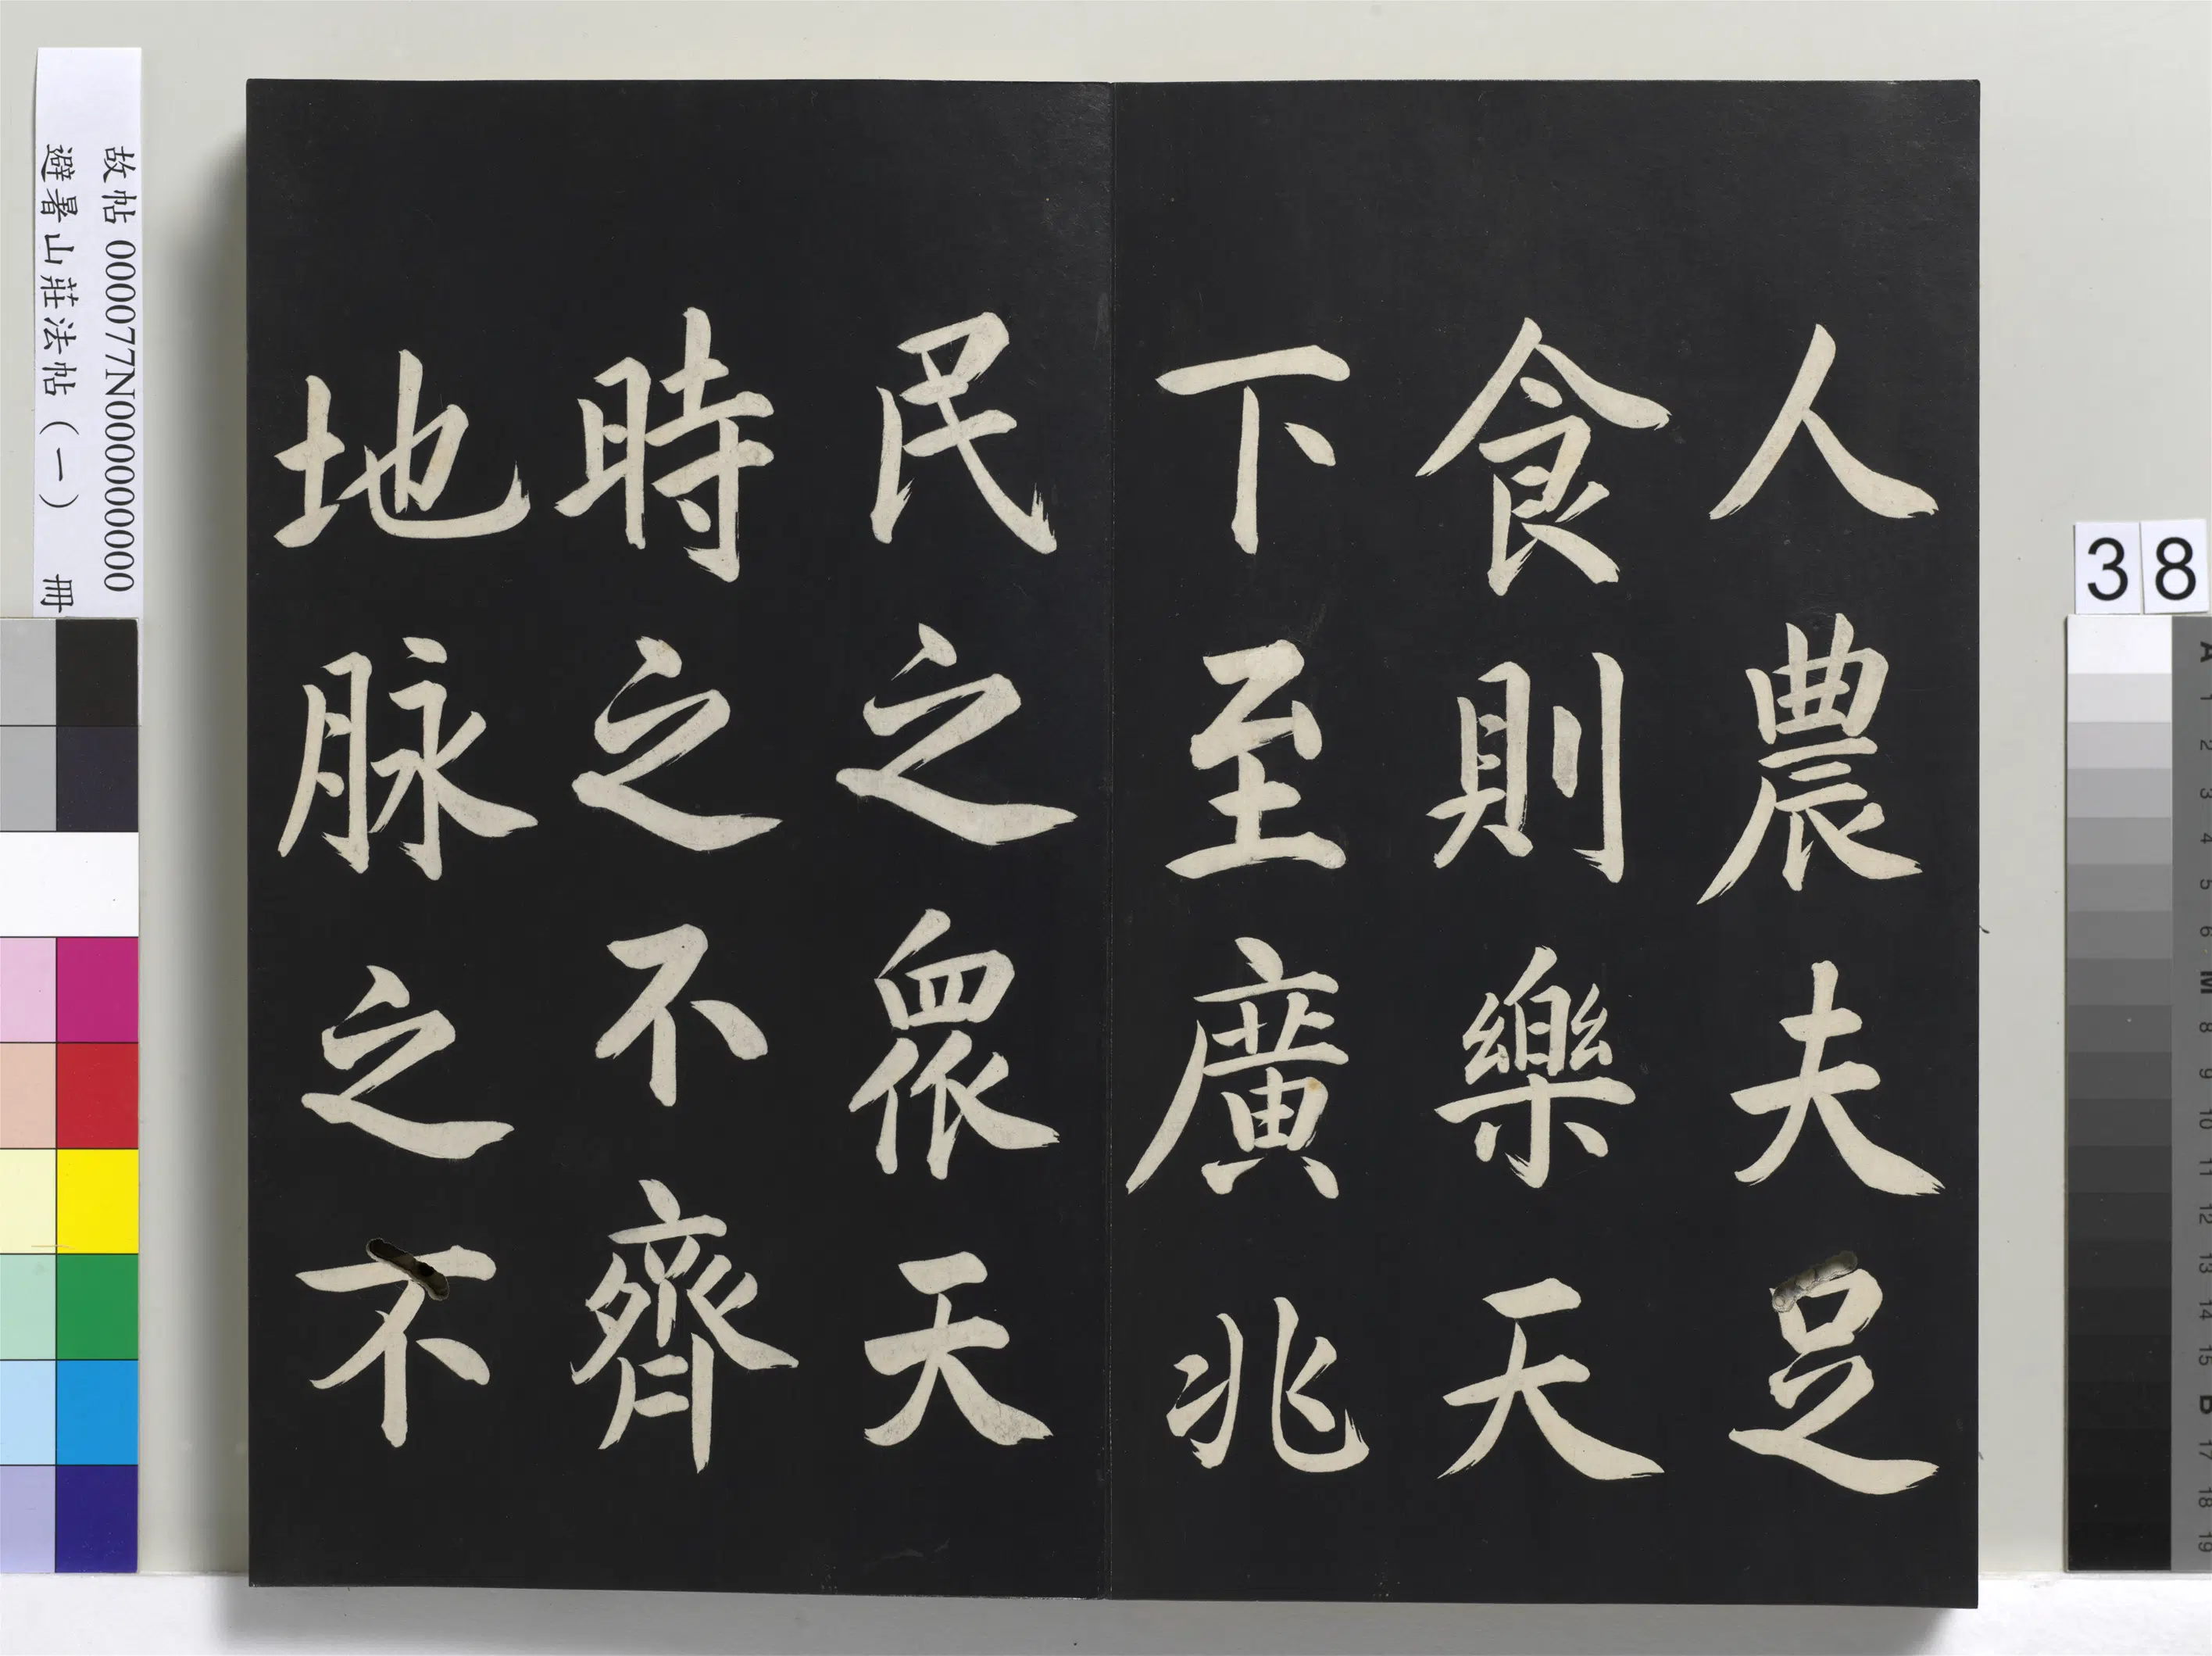 人農夫足
食則樂天
下至廣兆
民之衆天
時之不齊
地脉之不
故帖 000077N000000000
避暑山莊法帖(一) 冊
38
A 1 2 3 4 5 6 M 8 9 10 11 12 13 14 15 B 17 18 19